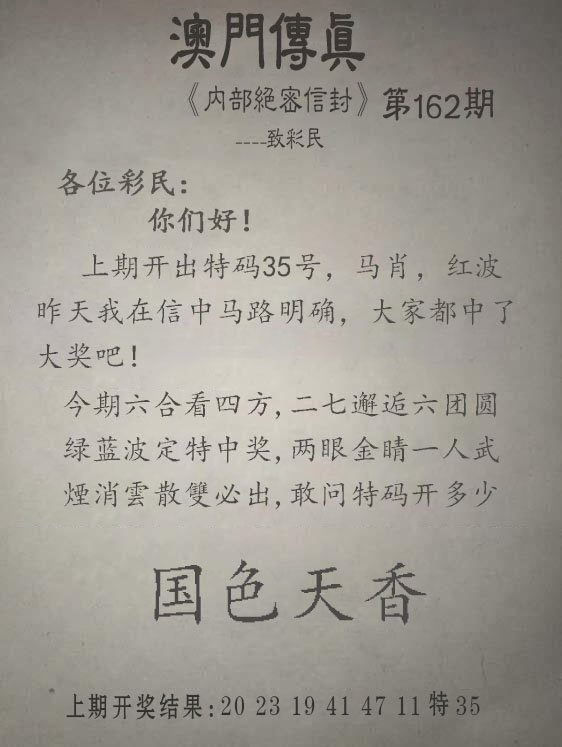 澳門傳眞
《内部絕密信封》第162期
----致彩民
各位彩民：
你们好！
上期开出特码35号，马肖，红波
昨天我在信中马路明确，大家都中了
大奖吧！
今期六合看四方,二七邂逅六团圆
绿蓝波定特中奖,两眼金睛一人武
煙消雲散雙必出,敢问特码开多少
国色天香
上期开奖结果:20 23 19 41 47 11 特35